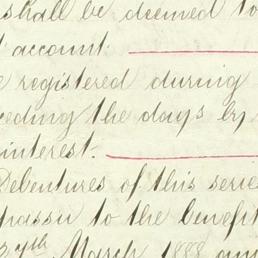 shall be deemed to
account.
registered during
eeding the days by
interest.
Debentures of this serie
passu to the benefit
7th March 1888 and